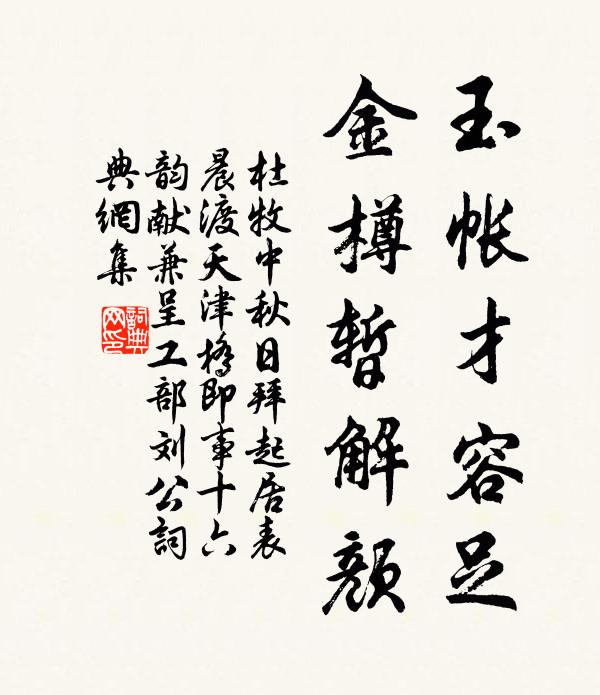 玉帐才容足
金樽暂解颜
杜牧中秋日拜起居表
晨渡天津桥即事十六
韵献兼呈工部刘公詞
典網集
詞典
网印